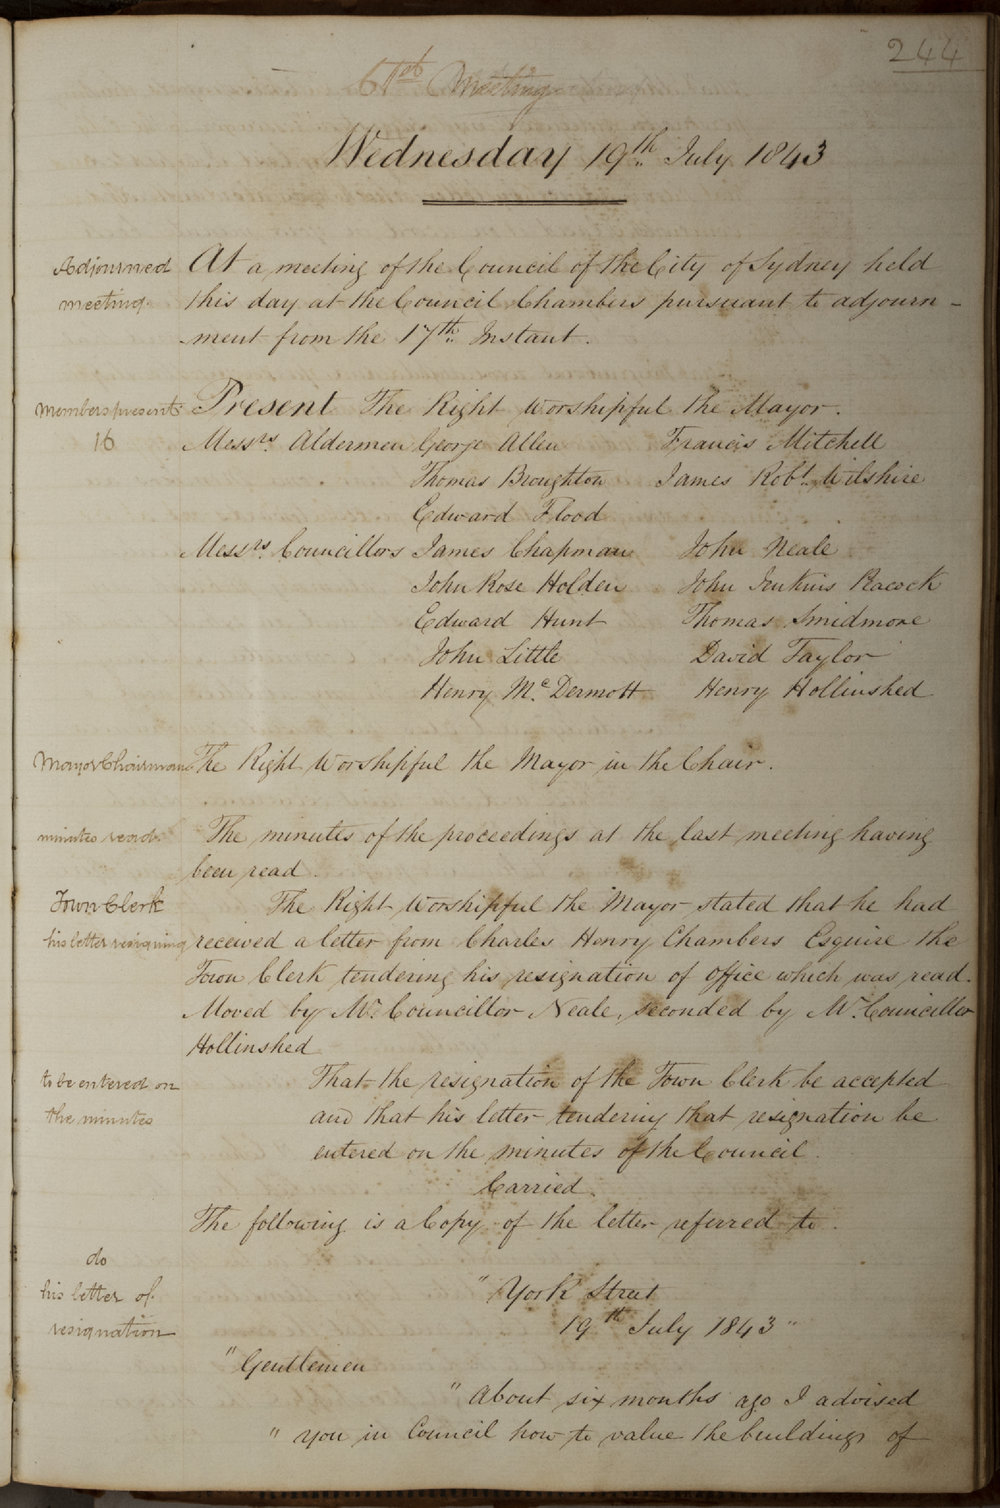 244
61st Meeting
Wednesday 19th July 1843
Adjourned
meeting.
At a meeting of the Council of the City of Sydney held
this day at the Council Chambers pursuant to adjourn-
ment from the 17th Instant.
Members present
16
Present The Right Worshipful the Mayor.
Messrs. Aldermen George Allen Francis Mitchell
Thomas Broughton James Robt. Wilshire
Edward Flood
Messrs. Councillors James Chapman John Neale
John Rose Holden John Jenkins Peacock
Edward Hunt Thomas Smidmore
John Little David Taylor
Henry McDermott Henry Hollinshed
Mayor Chairman
The Right Worshipful the Mayor in the Chair.
minutes read
The minutes of the proceedings at the last meeting having
been read.
Town Clerk
his letter resigning
The Right Worshipful the Mayor stated that he had
received a letter from Charles Henry Chambers Esquire the
Town Clerk tendering his resignation of office which was read.
Moved by Mr. Councillor Neale, seconded by Mr. Councillor
Hollinshed
to be entered on
the minutes
That the resignation of the Town Clerk be accepted
and that his letter tendering that resignation be
entered on the minutes of the Council.
Carried.
The following is a Copy of the letter referred to.
do
his letter of
resignation
"York Street
19th July 1843"
"Gentlemen
"About six months ago I advised
"you in Council how to value the buildings of